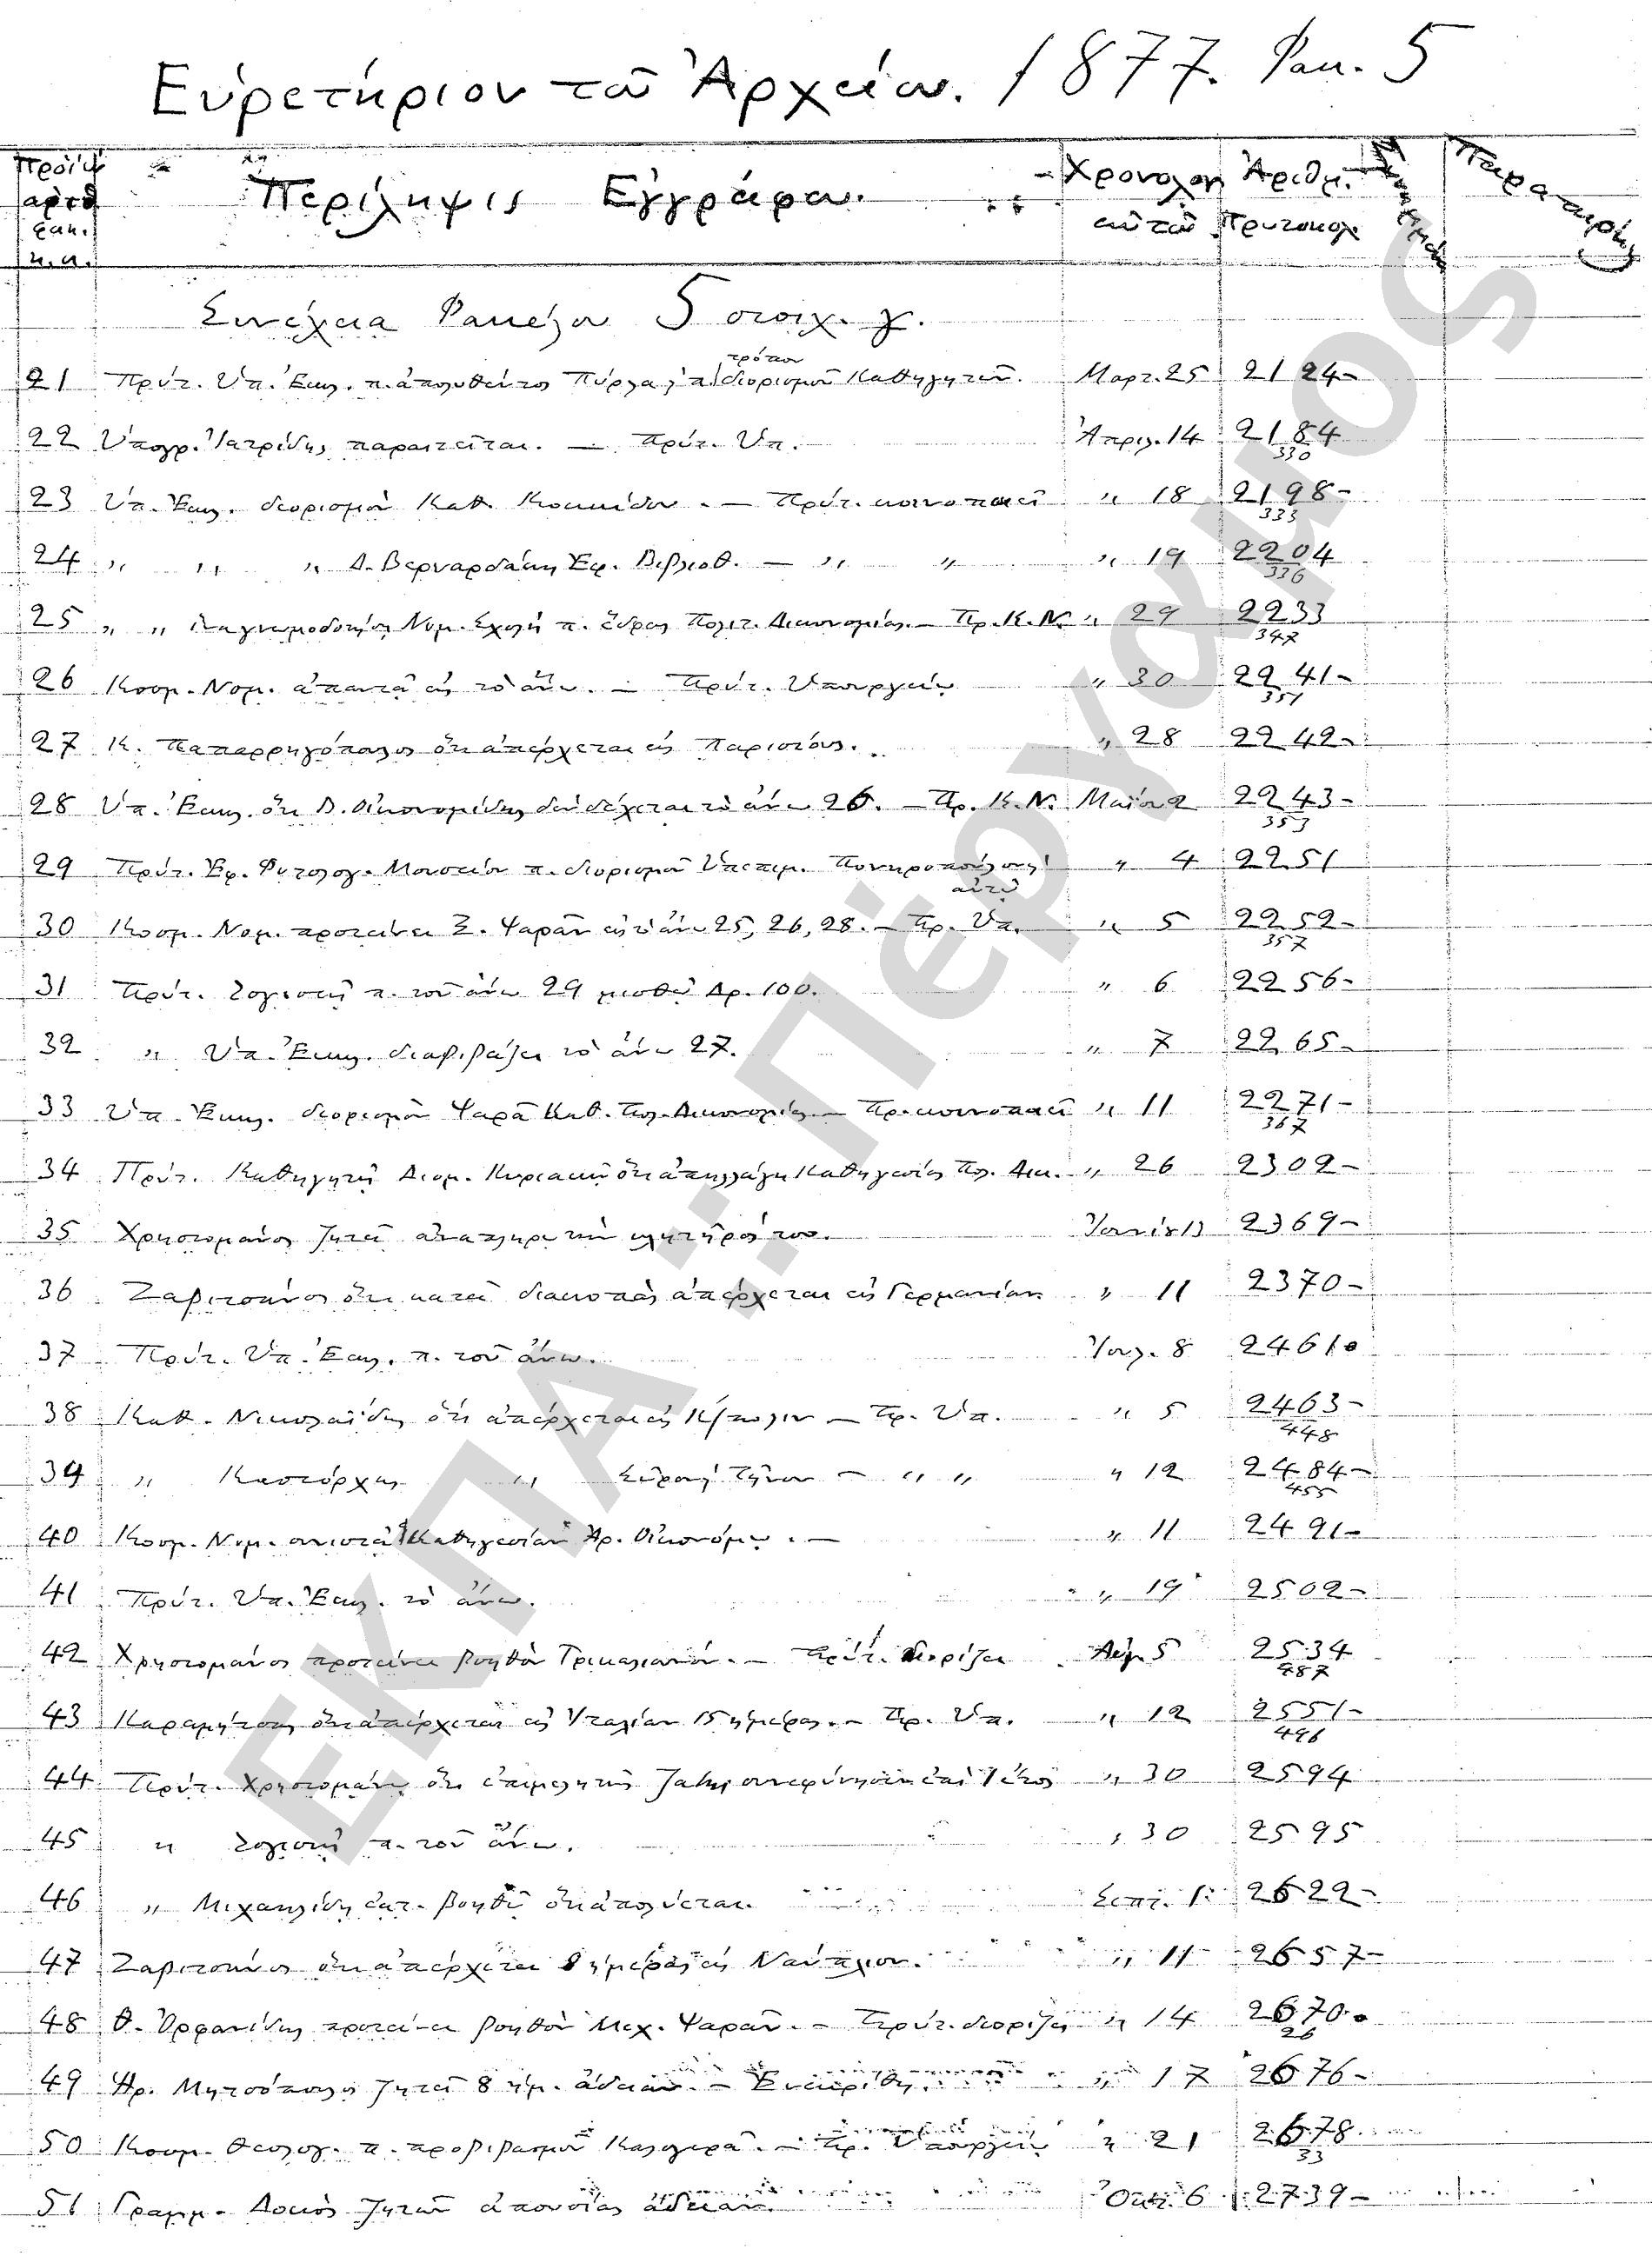 Εὑρετήριον τοῦ Ἀρχείου. 1877. Φακ. 5
Περίληψις Ἐγγράφου. Χρονολογ. Ἀριθμ.
αὐτοῦ Πρωτοκολ.
φακ.
κ.α.
Συνέχεια Φακέλου 5 στοιχ. γ.
τρόπου
21 Πρύτ. Ὑπ. Ἐκκλ. π. διορισμοῦ Καθηγητῶν. Μαρτ. 25 2124-
22 Ὑπογρ. Ἰατρίδης παραιτεῖται. — Πρύτ. Ὑπ. Ἀπριλ. 14 2184
330
23 Ὑπ. Ἐκκλ. διορισμὸν Καθ. Κοκκίδου. — Πρύτ. κοινοποιεῖ " 18 2198-
333
24 " " " Δ. Βερναρδάκη Ἐφ. Βιβλιοθ. — " " " 19 2204
336
25 " " Νομ. Σχολὴ π. ἕδρας Πολιτ. Οἰκονομίας. — Πρ. Κ. Ν. " 29 2233
347
26 Κοσμ. Νομ. ἀπαντᾷ εἰς τὸ ἄνω. — Πρύτ. Ὑπουργείῳ " 30 2241-
351
27 Κ. Παπαρρηγόπουλος ὅτι ἀπέρχεται εἰς Παρισίους. " 28 2242-
28 Ὑπ. Ἐκκλ. ὅτι Δ. Οἰκονομίδης δὲν δέχεται τὸ ἄνω 26. — Πρ. Κ. Ν. Μαΐου 2 2243-
353
29 Πρύτ. Ἐφ. Φυτολογ. Μουσείου π. διορισμοῦ Ὑπεπιμ. Πονηροπούλου " 4 2251
αὐτῷ
30 Κοσμ. Νομ. προτείνει Σ. Ψαρᾶν εἰς τὸ ἄνω 25, 26, 28. — Πρ. Ὑπ. " 5 2252-
357
31 Πρύτ. Λογιστῇ π. τοῦ ἄνω 29 μισθῷ Δρ. 100. " 6 2256-
32 " Ὑπ. Ἐκκλ. διαβιβάζει τὸ ἄνω 27. " 7 2265-
33 Ὑπ. Ἐκκλ. διορισμὸν Ψαρᾶ Καθ. Πολ. Οἰκονομίας — Πρ. κοινοποιεῖ " 11 2271-
367
34 Πρύτ. Καθηγητῇ Διομ. Κυριακῷ ὅτι ἀπηλλάγη Καθηγεσίας Πολ. Οἰκ. " 26 2302-
35 Χρηστομάνος ζητεῖ κλητῆρός του. Ἰουνίου 13 2369-
36 Ζαβιτσάνος ὅτι κατὰ διακοπὰς ἀπέρχεται εἰς Γερμανίαν " 11 2370-
37 Πρύτ. Ὑπ. Ἐκκλ. π. τοῦ ἄνω. Ἰουλ. 8 2461
38 Καθ. Νικολαΐδης ὅτι ἀπέρχεται εἰς Κ/πολιν — Πρ. Ὑπ. " 5 2463-
448
39 " Καστόρχης " Σύρον Τῆνον — " " " 12 2484-
455
40 Κοσμ. Νομ. συνιστᾷ Καθηγεσίαν Ἀρ. Οἰκονόμῳ. — " 11 2491-
41 Πρύτ. Ὑπ. Ἐκκλ. τὸ ἄνω. " 19 2502-
42 Χρηστομάνος προτείνει βοηθὸν Τρικαλιανόν. — Πρύτ. διορίζει Αὐγ. 5 2534
487
43 Καραμήτσας ὅτι ἀπέρχεται εἰς Ἰταλίαν 15 ἡμέρας. — Πρ. Ὑπ. " 12 2551-
496
44 Πρύτ. Χρηστομάνῳ ὅτι ἐπιμελητὴς ἐπὶ 1 ἔτος " 30 2594
45 " Λογιστῇ π. τοῦ ἄνω. " 30 2595
46 " Μιχαηλίδῃ ἐκτ. βοηθῷ ὅτι ἀπολύεται. Σεπτ. 1 2622-
47 Ζαβιτσάνος ὅτι ἀπέρχεται 8 ἡμέρας εἰς Ναύπλιον. " 11 2657-
48 Θ. Ὀρφανίδης προτείνει βοηθὸν Μιχ. Ψαρᾶν. — Πρύτ. διορίζει " 14 2670
26
49 Ἡρ. Μητσόπουλος ζητεῖ 8 ἡμ. ἄδειαν. — Ἐνεκρίθη. " 17 2676-
50 Κοσμ. Θεολογ. π. προβιβασμοῦ Καλογερᾶ. — Πρ. Ὑπουργείῳ " 21 2678
33
51 Γραμμ. Δοκὸς ζητεῖ ἀπουσίας ἄδειαν. Ὀκτ. 6 2739-
ΕΚΠΑ "Πέργαμος"